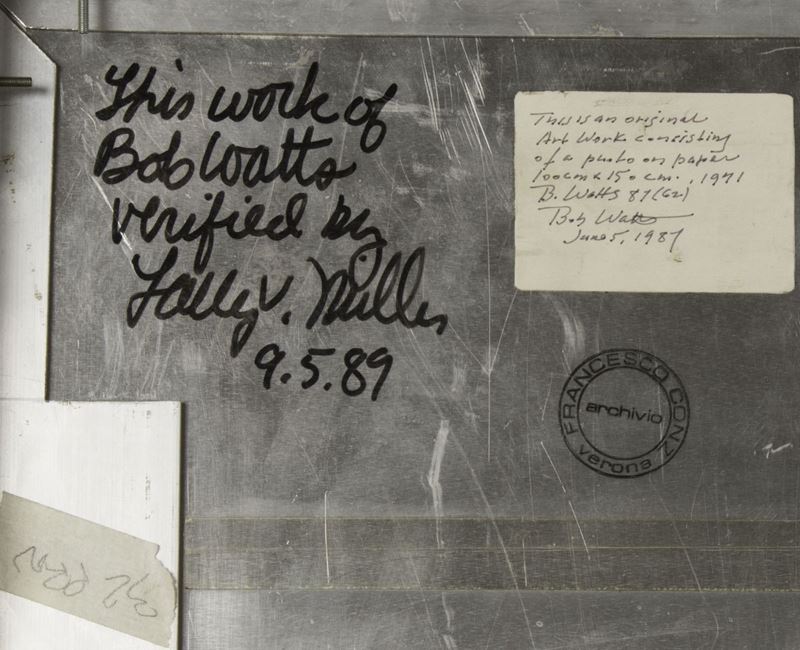 This work of
Bob Watts
verified by
Larry V. Miller
9.5.89
This is an original
Art Work consisting
of a photo on paper
100cm x 150 cm., 1971
B. Watts 87 (62)
Bob Watts
June 5, 1987
FRANCESCO CONZ
archivio
verona